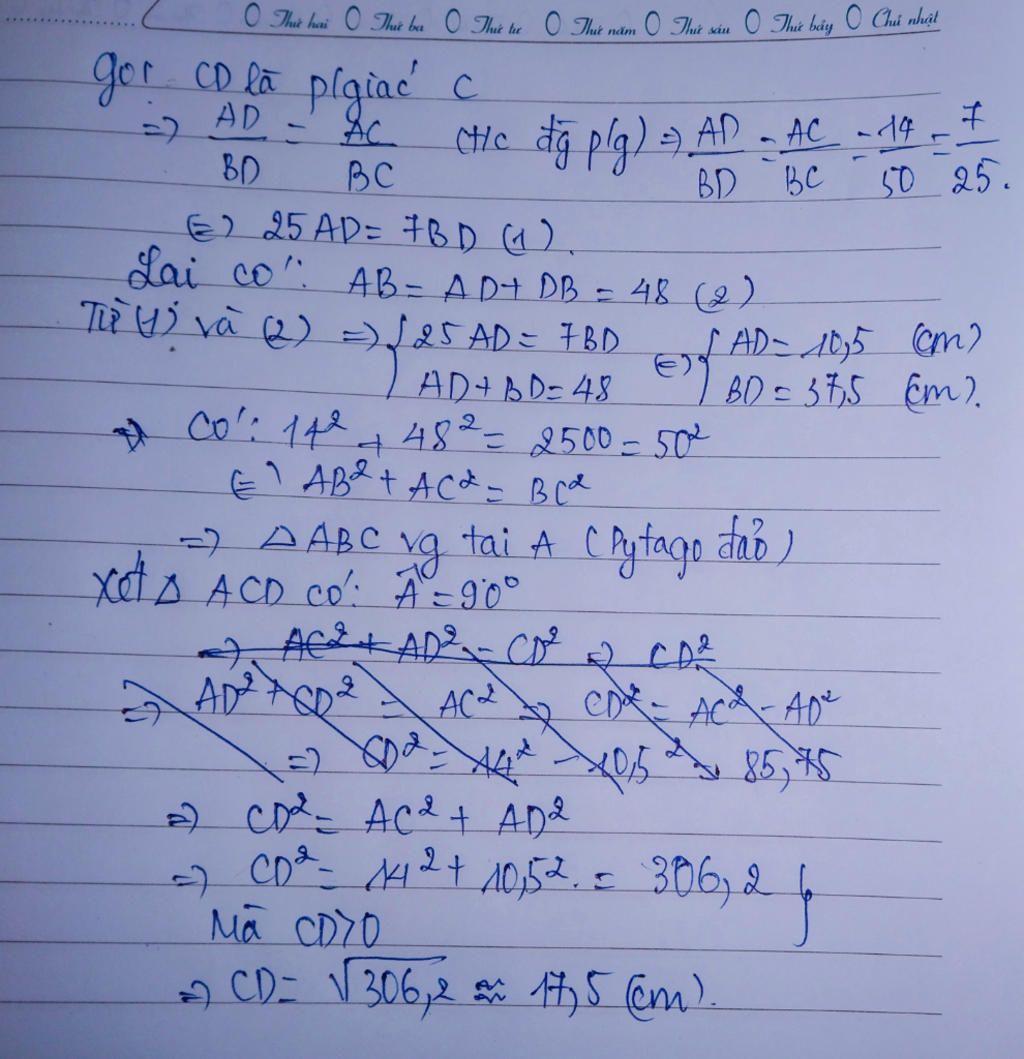 Thứ hai Thứ ba Thứ tư Thứ năm Thứ sáu Thứ bảy Chủ nhật
gọi CD là p/giác C
=> AD/BD = AC/BC (t/c đg p/g) => AD/BD = AC/BC = 14/50 = 7/25.
<=> 25AD = 7BD (1).
Lại có: AB = AD + DB = 48 (2)
Từ (1) và (2) => { 25AD = 7BD <=> { AD = 10,5 (cm)
AD + BD = 48 BD = 37,5 (cm).
Có: 14² + 48² = 2500 = 50²
<=> AB² + AC² = BC²
=> Δ ABC vg tại A (Pytago đảo)
Xét Δ ACD có: Â = 90°
=> AC² + AD² = CD² => CD²
=> AD² + CD² = AC² => CD² = AC² - AD²
=> CD² = 14² - 10,5² = 85,75
=> CD² = AC² + AD²
=> CD² = 14² + 10,5². = 306,2 }
Mà CD>0
=> CD = √306,2 ≈ 17,5 (cm).